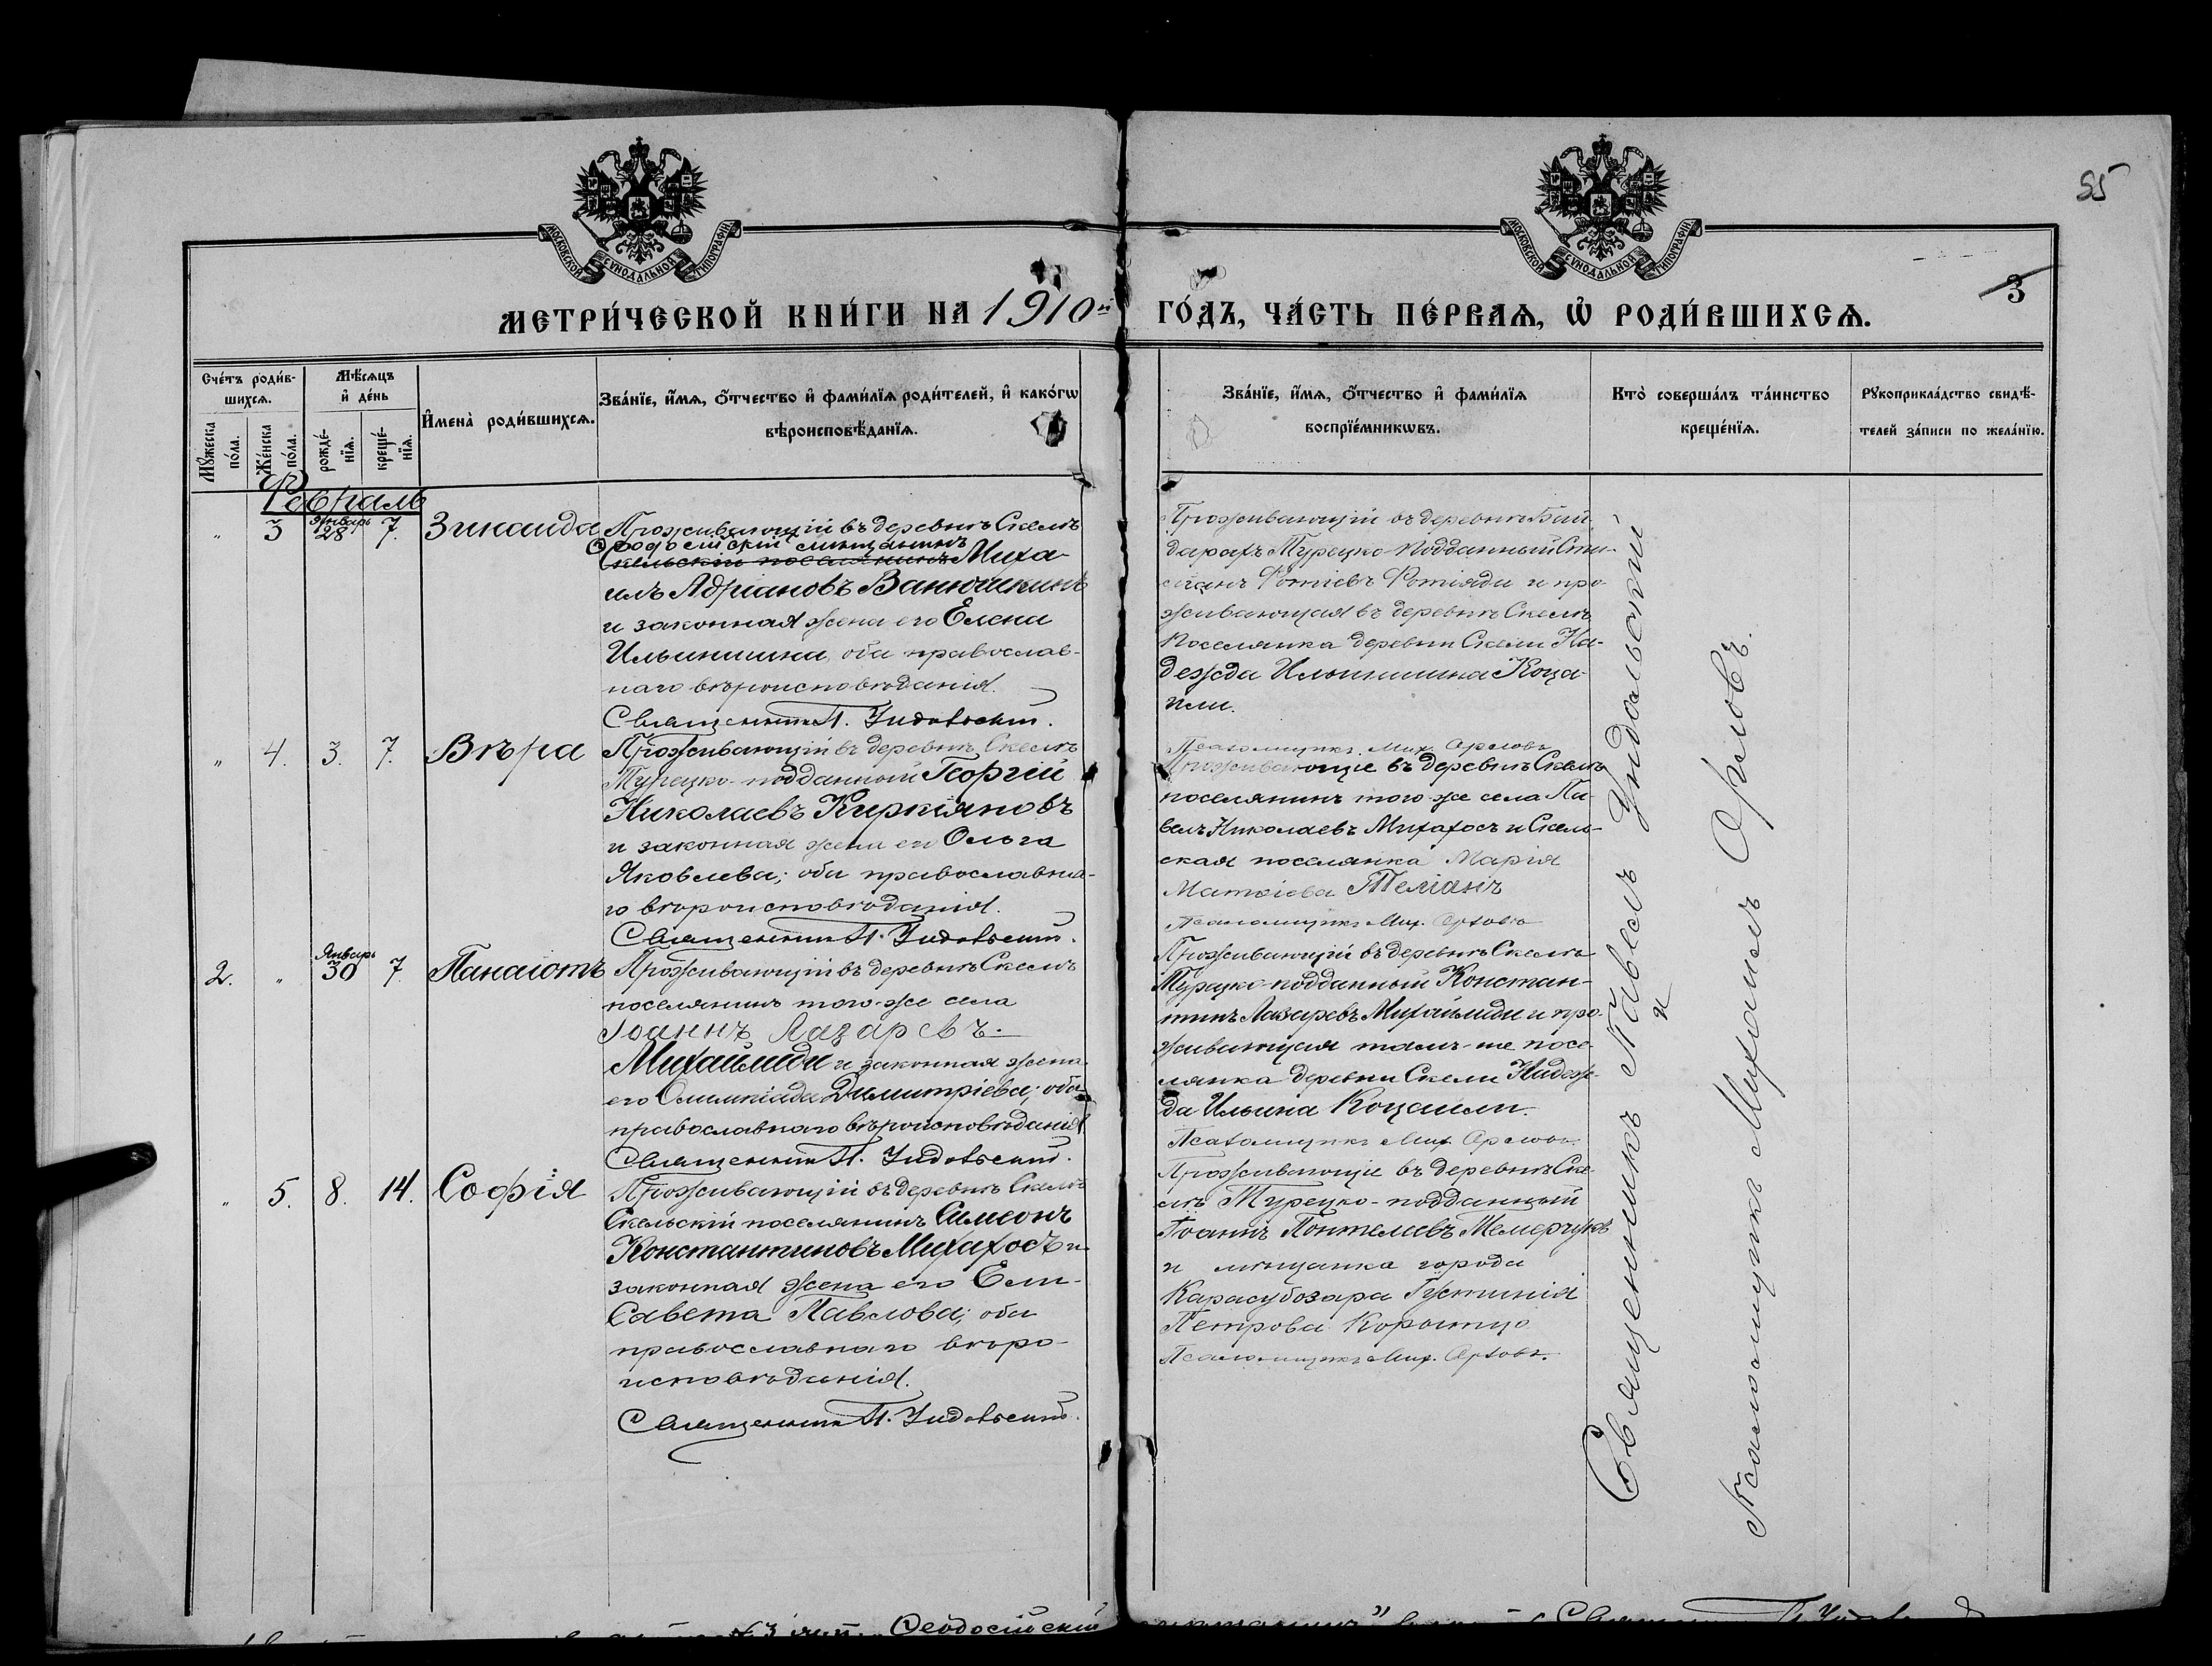 55
МОСКОВСКОЙ СѴНОДАЛЬНОЙ ТИПОГРАФІИ
МОСКОВСКОЙ СѴНОДАЛЬНОЙ ТИПОГРАФІИ
3
МЕТРИ́ЧЕСКОЙ КНИ́ГИ НА 1910й ГО́ДЪ, ЧА́СТЬ ПЕ́РВАѦ, Ѡ҆ РОДИ́ВШИХСѦ.
Сче́тъ роди́в-
шихсѧ.
Мꙋ́жеска по́ла.
Же́нска по́ла.
Мѣ́сѧцъ
и҆ де́нь
рожде́-
нїѧ.
креще́-
нїѧ.
И҆мена̀ роди́вшихсѧ.
Зва́нїе, и҆́мѧ, ѻ҆́тчество и҆ фами́лїѧ роди́телей, и҆ како́гѡ
вѣроисповѣ́данїѧ.
Зва́нїе, и҆́мѧ, ѻ҆́тчество и҆ фами́лїѧ
воспрїе́мникѡвъ.
Кто̀ соверша́лъ та́инство
креще́нїѧ.
Рꙋкоприкла́дство свидѣ́-
телей за́писи по жела́нїю.
Февраль
" 3 Январь 28 7. Зинаида
Проживающій въ деревнѣ Скелѣ
Ѳеодосійскій мѣщанинъ
Скельскій поселянинъ Миха-
илъ Адриановъ Ванюшкинъ
и законная жена его Елена
Ильинишна, оба православ-
наго вѣроисповѣданія.
Священникъ П. Ундольскій.
Проживающій въ деревнѣ Бай-
дарахъ Турецко-подданный Сти-
Фотіевъ Фотіяди и про-
живающая въ деревнѣ Скелѣ
поселянка деревни Скели На-
дежда Ильинишна Коца-
или.
Псаломщикъ Мих. Орловъ
" 4. 3. 7. Вѣра
Проживающій въ деревнѣ Скелѣ
Турецко-подданный Георгій
Николаевъ Киркіяновъ
и законная жена его Ольга
Яковлева; оба православна-
го вѣроисповѣданія.
Священникъ П. Ундольскій.
Проживающіе въ деревнѣ Скелѣ
поселянинъ того-же села Па-
велъ Николаевъ Михахосъ и Скель-
ская поселянка Марія
Матвіева Теліанъ
Псаломщикъ Мих. Орловъ
2. " Январь 30 7. Панаіотъ
Проживающій въ деревнѣ Скелѣ
поселянинъ того-же села
Іоаннъ Лазаревъ
Михайлиди и законная жена
его Олимпіада Димитріева; оба
православнаго вѣроисповѣданія
Священникъ П. Ундольскій.
Проживающій въ деревнѣ Скелѣ
Турецко-подданный Констан-
тинъ Лазаревъ Михайлиди и про-
живающая тамъ-же посе-
лянка деревни Скели Надеж-
да Ильина Коцаили.
Псаломщикъ Мих. Орловъ.
" 5. 8. 14. Софія
Проживающій въ деревнѣ Скелѣ
Скельскій поселянинъ Симеонъ
Константиновъ Михахосъ и
законная жена его Ели-
савета Павлова; оба
православнаго вѣро-
исповѣданія.
Священникъ П. Ундольскій.
Проживающіе въ деревнѣ Ске-
лѣ Турецко-подданный
Іоаннъ Понтелевъ
и мѣщанка города
Карасубозара Густинія
Петрова
Псаломщикъ Мих. Орловъ.
Священникъ Павелъ Ундольскій
и
Псаломщикъ Михаилъ Орловъ.
Ѳеодосійскій